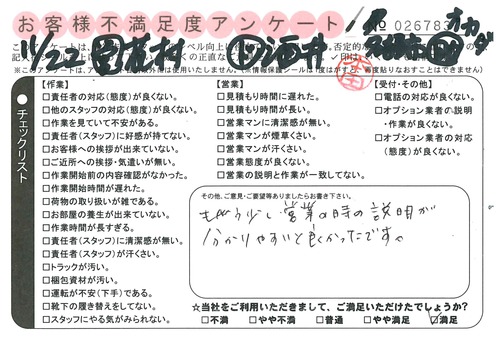 お客様不満足度アンケート
№ 026783
11/22
【作業】
□責任者の対応(態度)が良くない。
□他のスタッフの対応(態度)が良くない。
□作業を見ていて不安がある。
□責任者(スタッフ)に好感が持てない。
□お客様への挨拶が出来ていない。
□ご近所への挨拶・気遣いが無い。
□作業開始前の内容確認がなかった。
□作業開始時間が遅れた。
□荷物の取り扱いが雑である。
□お部屋の養生が出来ていない。
□作業時間が長すぎる。
□責任者(スタッフ)に清潔感が無い。
□責任者(スタッフ)が汗くさい。
□トラックが汚い。
□梱包資材が汚い。
□運転が不安(下手)である。
□靴下の履き替えをしてない。
□スタッフにやる気がみられない。
【営業】
□見積もり時間に遅れた。
□見積もり時間が長い。
□営業マンに清潔感が無い。
□営業マンが煙草くさい。
□営業マンが汗くさい。
□営業態度が良くない。
□営業の説明と作業が一致してない。
【受付・その他】
□電話の対応が良くない。
□オプション業者の説明
・作業が良くない。
□オプション業者の対応
(態度)が良くない。
チェックリスト
その他、ご意見・ご要望等ありましたらお書き下さい。
もう少し営業の時の説明が
分かりやすいと良かったです。
☆当社をご利用いただきまして、ご満足いただけたでしょうか?
□不満 □やや不満 □普通 □やや満足 ☑満足